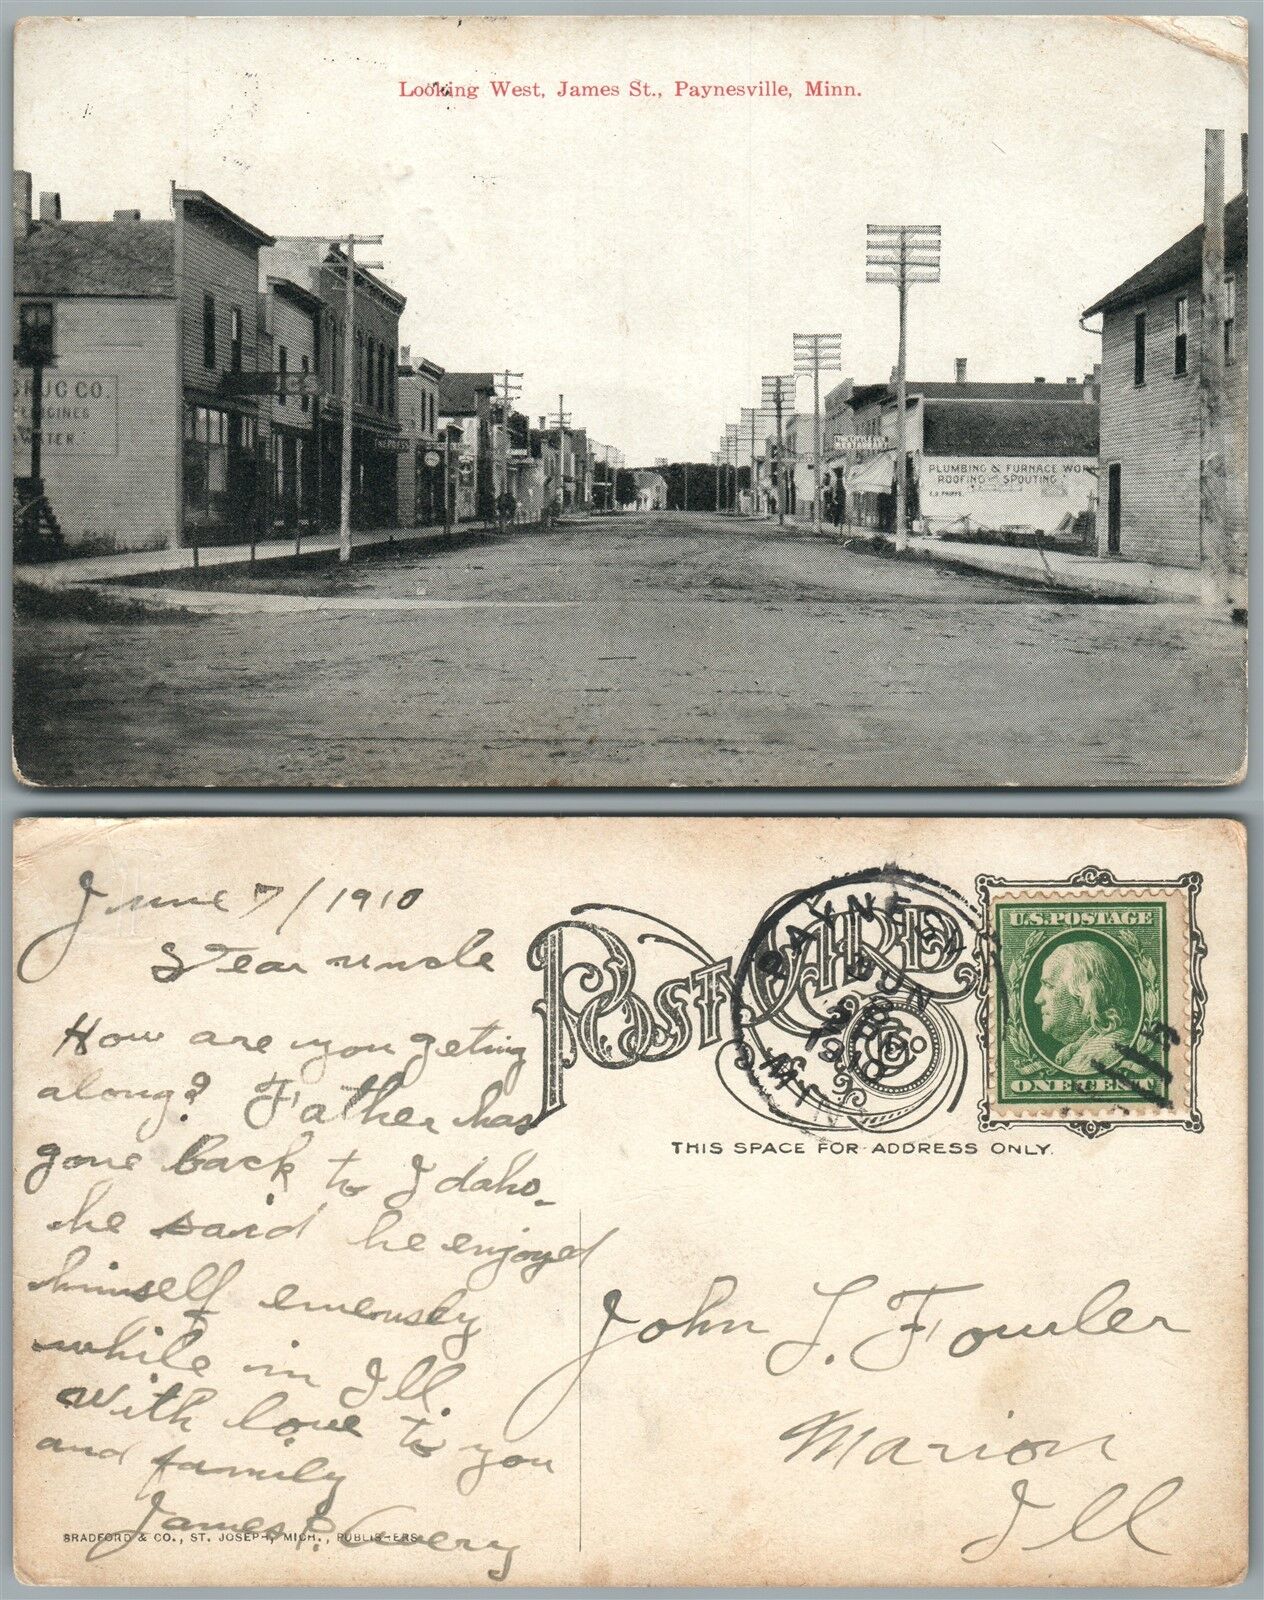 Looking West, James St., Paynesville, Minn.
DRUG CO.
WATER
PLUMBING & FURNACE WORK
ROOFING AND SPOUTING
June 7/1910
Dear uncle
How are you geting
along? Father has
gone back to Idaho.
he said he enjoyed
himself emensely
while in Ill.
With love to you
and family
James P. Avery
BRADFORD & CO., ST. JOSEPH, MICH., PUBLISHERS
POST CARD
PAYNESV
JUN
1910
MINN
U.S. POSTAGE
ONE CENT
THIS SPACE FOR ADDRESS ONLY.
John L. Fowler
Marion
Ill